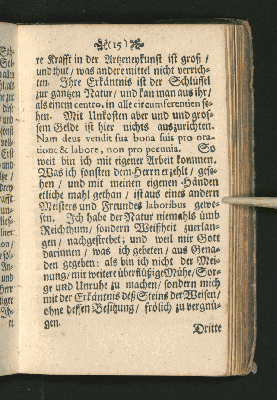 ( 15 )
re Krafft in der Artzeneykunst ist groß /
und thut / was andere mittel nicht verrich-
ten. Ihre Erkäntnis ist der Schlüssel
zur gantzen Natur / und kan man aus ihr /
als einem centro, in alle circumferentien se-
hen. Mit Unkosten aber und und gros-
sem Gelde ist hier nichts auszurichten.
Nam deus vendit sua bona suis pro ora-
tione & labore, non pro pecunia. So
weit bin ich mit eigener Arbeit kommen.
Was ich sonsten dem Herrn erzehlt / gese-
hen / und mit meinen eigenen Händen
etliche mahl gethan / ist aus eines andern
Meisters und Freundes laboribus gewe-
sen. Ich habe der Natur niemahls ümb
Reichthum / sondern Weißheit zuerlan-
gen / nachgestrebet; und weil mir Gott
darinnen / was ich gebeten / aus Gena-
den gegeben: als bin ich nicht der Mei-
nung / mit weitere überflüßige Mühe / Sor-
ge und Unruhe zu machen / sondern mich
mit der Erkäntnis deß Steins der Weisen /
ohne dessen Besitzung / frölich zu vergnü-
gen.
Dritte